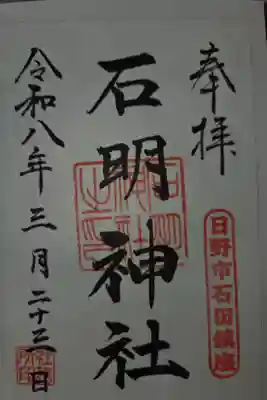 奉拝
日野市石田鎮座
石明神社
令和八年三月二十三日